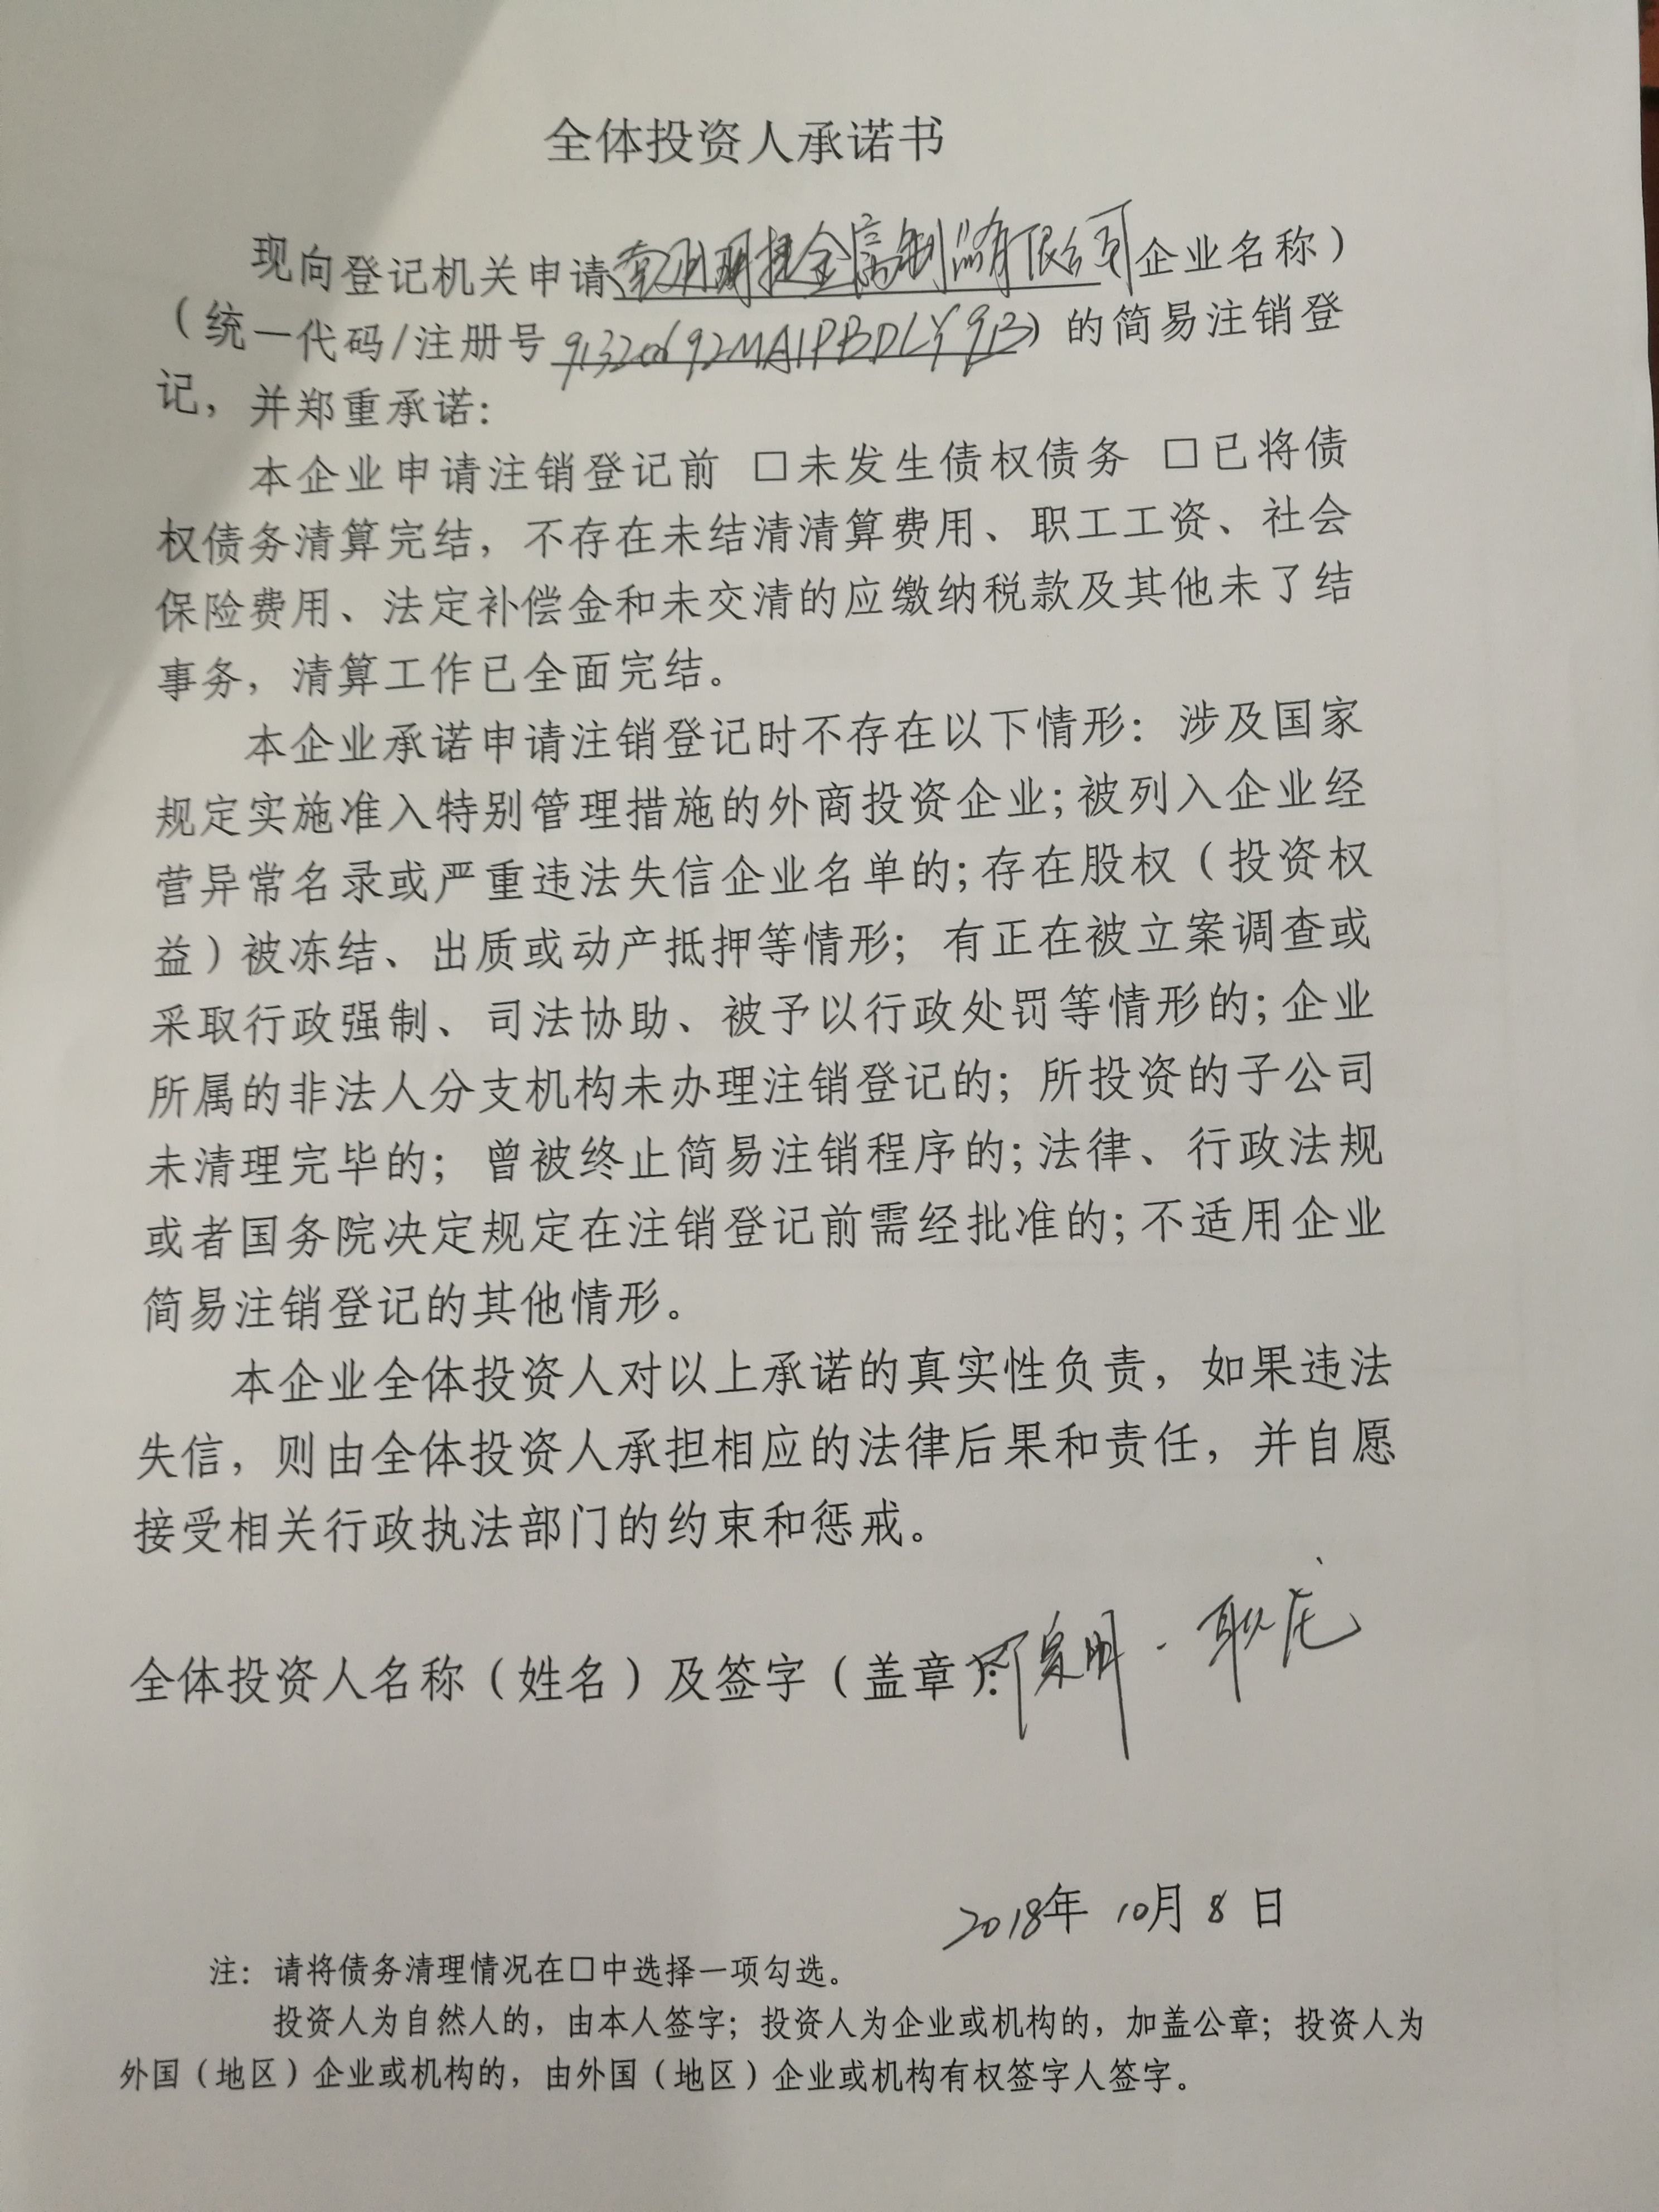 全体投资人承诺书
现向登记机关申请 明捷金属制品有限公司企业名称）
（统一代码/注册号 91320692MA1PBDLY9B）的简易注销登
记，并郑重承诺：
本企业申请注销登记前 □未发生债权债务 □已将债
权债务清算完结，不存在未结清清算费用、职工工资、社会
保险费用、法定补偿金和未交清的应缴纳税款及其他未了结
事务，清算工作已全面完结。
本企业承诺申请注销登记时不存在以下情形：涉及国家
规定实施准入特别管理措施的外商投资企业；被列入企业经
营异常名录或严重违法失信企业名单的；存在股权（投资权
益）被冻结、出质或动产抵押等情形；有正在被立案调查或
采取行政强制、司法协助、被予以行政处罚等情形的；企业
所属的非法人分支机构未办理注销登记的；所投资的子公司
未清理完毕的；曾被终止简易注销程序的；法律、行政法规
或者国务院决定规定在注销登记前需经批准的；不适用企业
简易注销登记的其他情形。
本企业全体投资人对以上承诺的真实性负责，如果违法
失信，则由全体投资人承担相应的法律后果和责任，并自愿
接受相关行政执法部门的约束和惩戒。
全体投资人名称（姓名）及签字（盖章）：
2018年 10月 8 日
注：请将债务清理情况在□中选择一项勾选。
投资人为自然人的，由本人签字；投资人为企业或机构的，加盖公章；投资人为
外国（地区）企业或机构的，由外国（地区）企业或机构有权签字人签字。